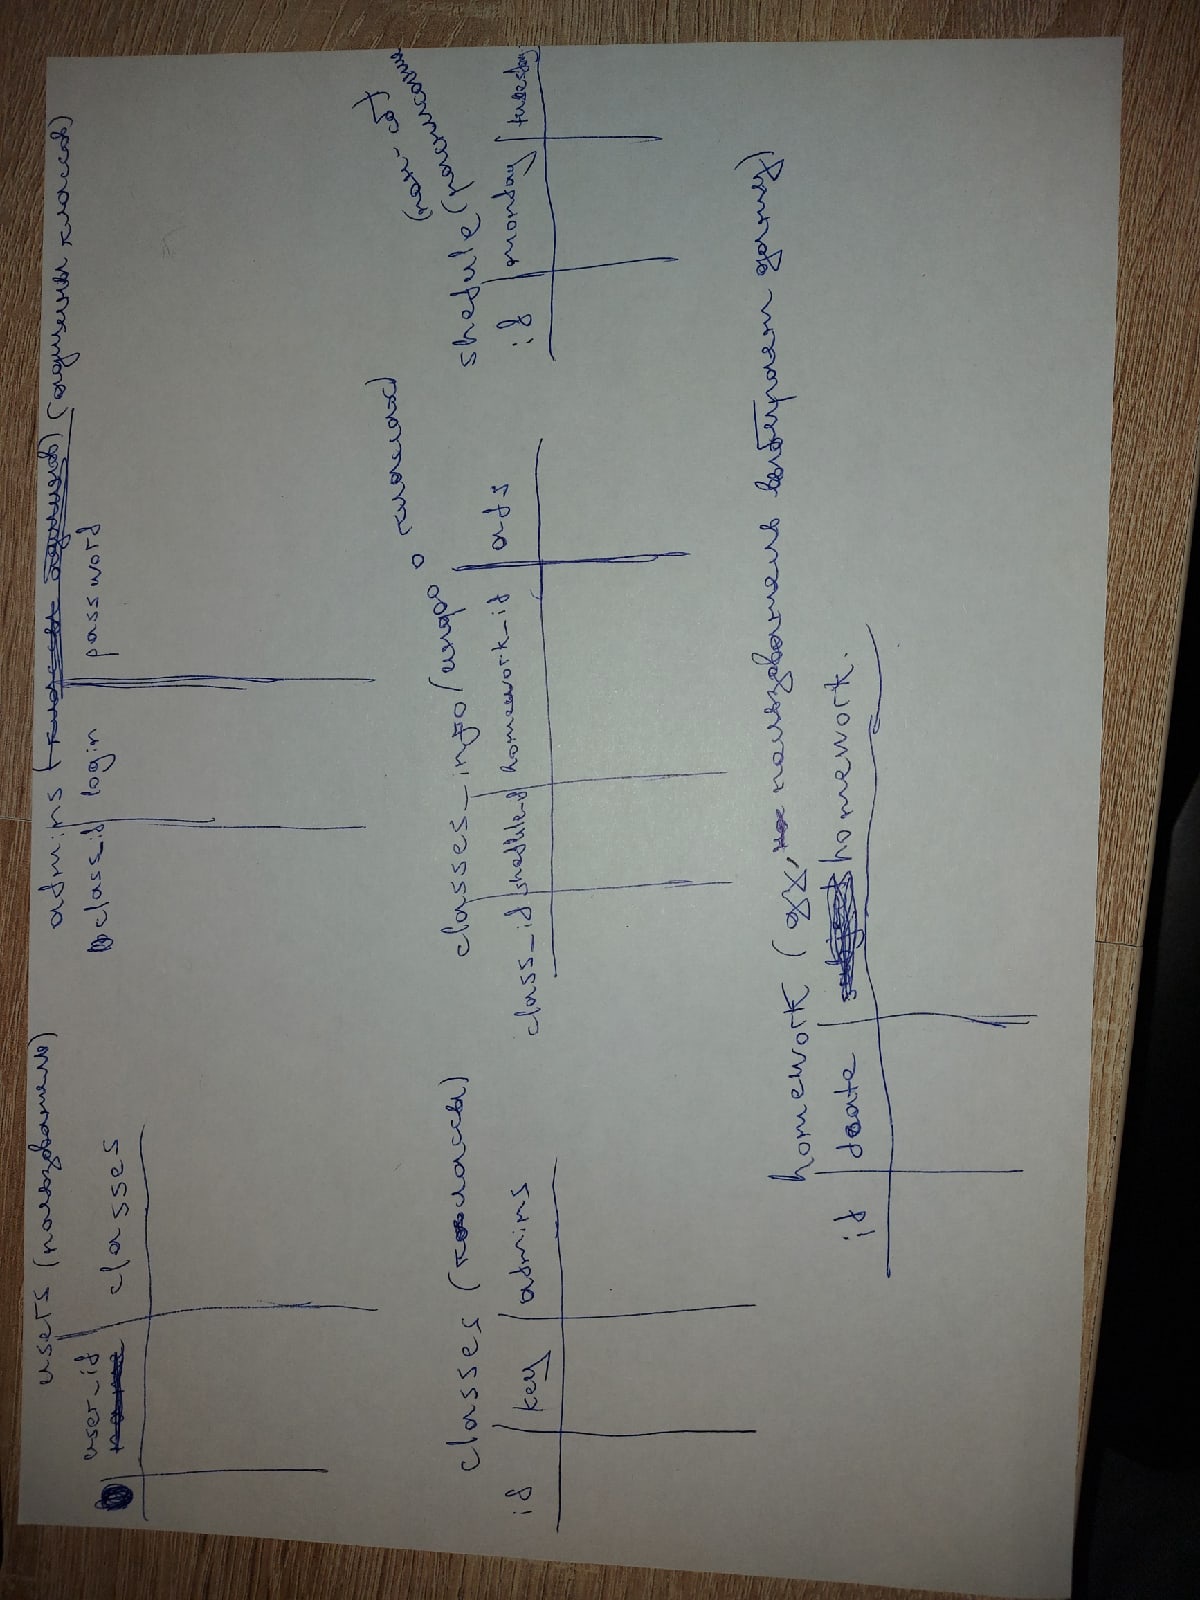 users (пользователь)
user_id
classes
admins (админы классов)
class_id login password
classes (классы)
id key admins
classes_info (инфо о классах)
class_id shedule_id homework_id ads
(пон-сб)
shedule (расписание
id monday tuesday
homework (дз, пользователь выбирает дату)
id date homework.